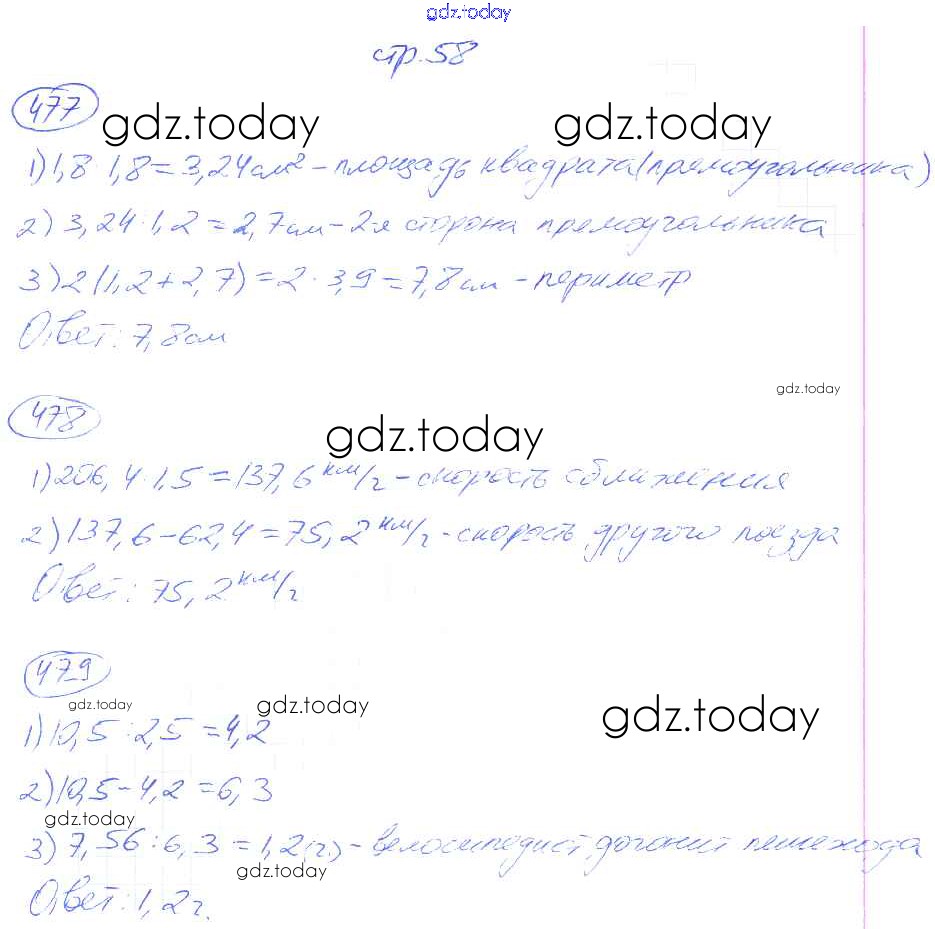 gdz.today
стр. 58
477
gdz.today gdz.today
1) 1,8 · 1,8 = 3,24 см² - площадь квадрата (прямоугольника)
2) 3,24 : 1,2 = 2,7 см - 2-я сторона прямоугольника
3) 2(1,2 + 2,7) = 2 · 3,9 = 7,8 см - периметр
Ответ: 7,8 см
gdz.today
478
gdz.today
1) 206,4 : 1,5 = 137,6 км/г - скорость сближения
2) 137,6 - 62,4 = 75,2 км/г - скорость другого поезда
Ответ: 75,2 км/г
479
gdz.today gdz.today gdz.today
1) 10,5 : 2,5 = 4,2
2) 10,5 - 4,2 = 6,3
gdz.today
3) 7,56 : 6,3 = 1,2 (г.) - велосипедист догонит пешехода
gdz.today
Ответ: 1,2 г.